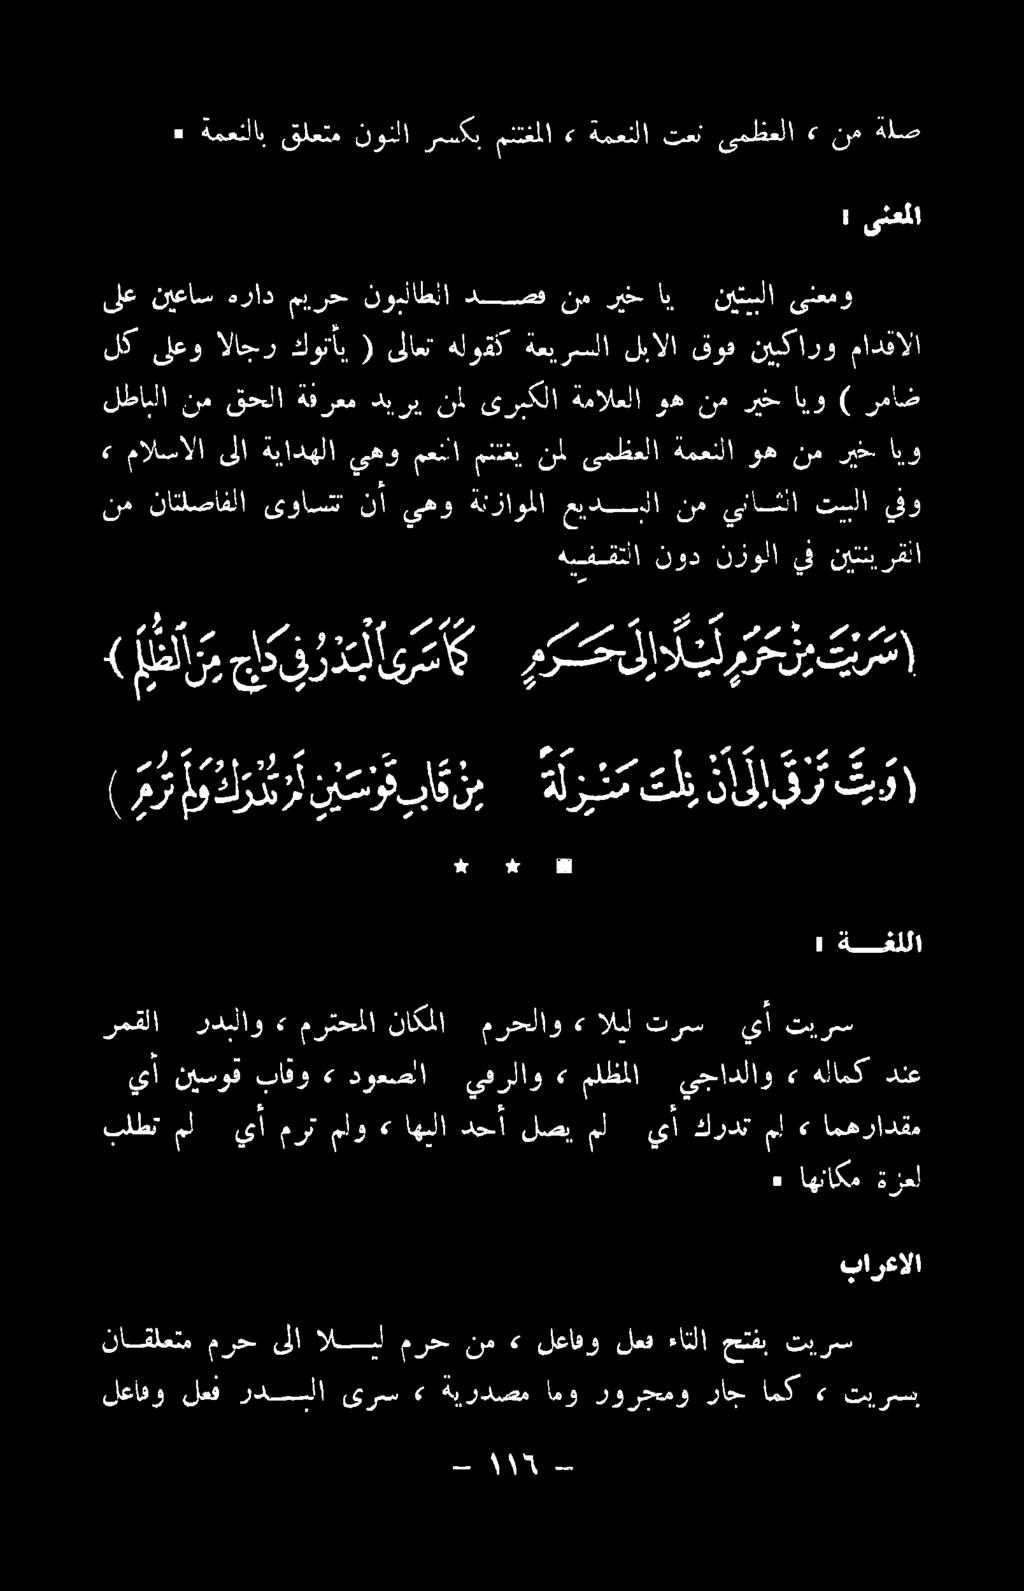 صلة من ، العظمى نعت النعمة ، المغتنم بكسر النون متعلق بالنعمة .
المعنى :
ومعنى البيتين يا خير من قصد الطالبون حريم داره ساعين على
الاقدام وراكبين فوق الابل السريعة كقوله تعالى ( يأتوك رجالا وعلى كل
ضامر ) ويا خير من هو العلامة الكبرى لمن يريد معرفة الحق من الباطل
ويا خير من هو النعمة العظمى لمن يغتنم النعم وهي الهداية الى الاسلام ،
وفي البيت الثاني من البديع الموازنة وهي أن تتساوى الفاصلتان من
القرينتين في الوزن دون التقفيه
( سَرَيْتَ مِنْ حَرَمٍ لَيْلًا إِلَى حَرَمٍ كَمَا سَرَى الْبَدْرُ فِي دَاجٍ مِنَ الظُّلَمِ )
( وَبِتَّ تَرْقَى إِلَى أَنْ نِلْتَ مَنْزِلَةً مِنْ قَابِ قَوْسَيْنِ لَمْ تُدْرَكْ وَلَمْ تُرَمِ )
اللغة :
سريت أي سرت ليلا ، والحرم المكان المحترم ، والبدر القمر
عند كماله ، والداجي المظلم ، والرقي الصعود ، وقاب قوسين أي
مقدارهما ، لم تدرك أي لم يصل أحد اليها ، ولم ترم أي لم تطلب
لعزة مكانها .
الاعراب
سريت بفتح التاء فعل وفاعل ، من حرم ليلا الى حرم متعلقان
بسريت ، كما جار ومجرور وما مصدرية ، سرى البدر فعل وفاعل
- ١١٦ -